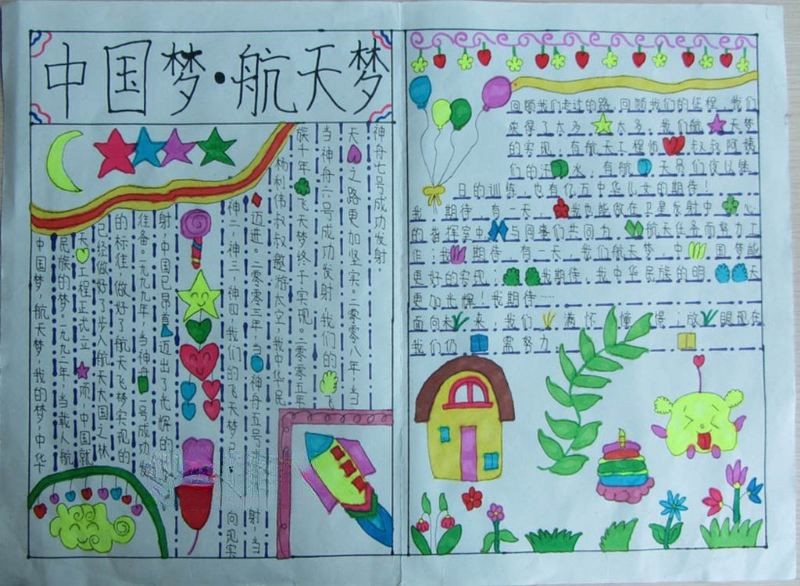 中国梦·航天梦
中国梦，航天梦，我的梦，中华
民族的梦！一九九二年，当载人航
天工程正式立项，中国就
已经做好了步入航天大国之林
的标准，做好了航天飞梦实现的
准备。一九九九年，当神舟一号成功发
射，中国已昂首迈出了光辉的
神二、神三、神四，我们的飞天梦已 向现实
迈进。二零零三年，当神舟五号 射，当
杨利伟叔叔遨游太空，我中华民
族千年飞天梦终于实现。二零零五年
当神舟六号成功发射，我们的飞
天之路更加坚实。二零零八年，当
神舟七号成功发射。
回顾我们走过的路，回顾我们的征程，我们
来得了太多太多，我们航天梦
的实现，有航天工程师叔叔阿姨
们的汗水，有航天员们夜以继
日的训练，也有亿万中华儿女的期待！
我期待，有一天，我也能做在卫星发射中心
的指挥室中与同事们共同为航天任务而努力工
作；我期待，有一天，我们航天梦，中国梦能
更好的实现；我期待，我中华民族的明天
更加光辉！我期待……
面向未来，我们满怀憧憬；放眼现在
我们仍需努力。